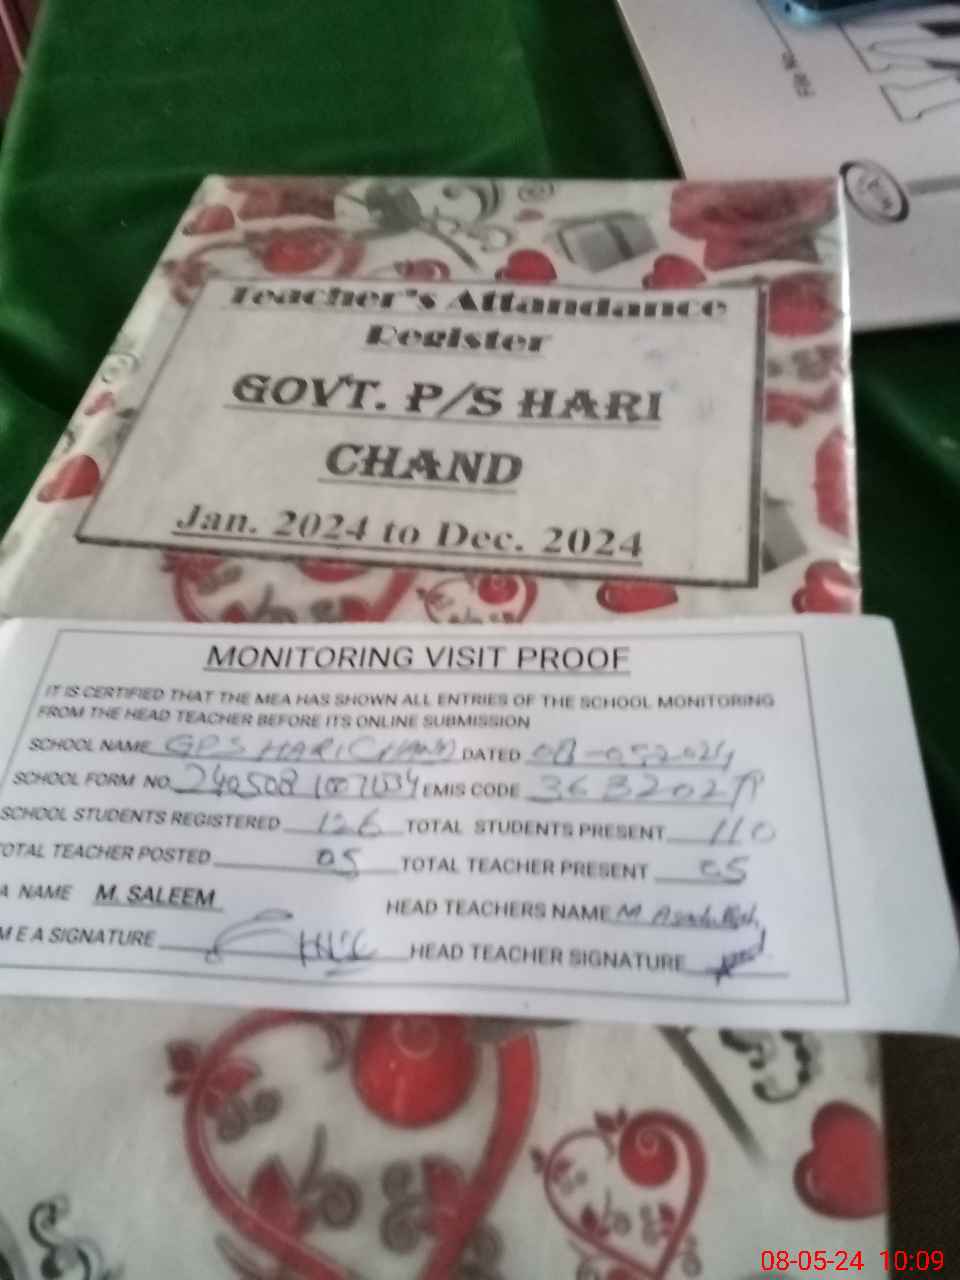 File No.
Teacher's Attandance
Register
GOVT. P/S HARI
CHAND
Jan. 2024 to Dec. 2024
MONITORING VISIT PROOF
IT IS CERTIFIED THAT THE MEA HAS SHOWN ALL ENTRIES OF THE SCHOOL MONITORING
FROM THE HEAD TEACHER BEFORE ITS ONLINE SUBMISSION
SCHOOL NAME GPS HARI CHAND DATED 08-05-2024
SCHOOL FORM NO. EMIS CODE
SCHOOL STUDENTS REGISTERED 126 TOTAL STUDENTS PRESENT 110
OTAL TEACHER POSTED 05 TOTAL TEACHER PRESENT 05
A NAME M. SALEEM HEAD TEACHERS NAME M.
M E A SIGNATURE HEAD TEACHER SIGNATURE
08-05-24 10:09